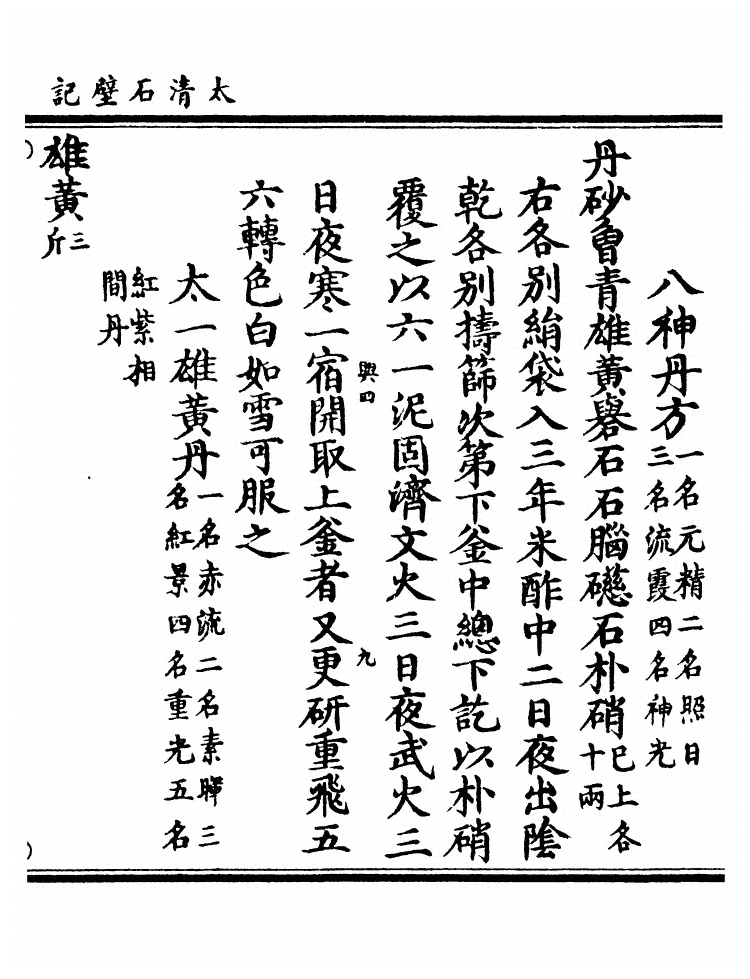 太清石壁記
八神丹方一名元精二名照日
三名流霞四名神光
丹砂曾青雄黃礜石石腦礠石朴硝已上各
十兩
右各別絹袋入三年米酢中二日夜出陰
乾各別擣篩次第下釜中總下訖以朴硝
覆之以六一泥固濟文火三日夜武火三
興四
九
日夜寒一宿開取上釜者又更研重飛五
六轉色白如雪可服之
太一雄黃丹一名赤流二名素暉三
名紅景四名重光五名
紅紫相
間丹
雄黃三
斤